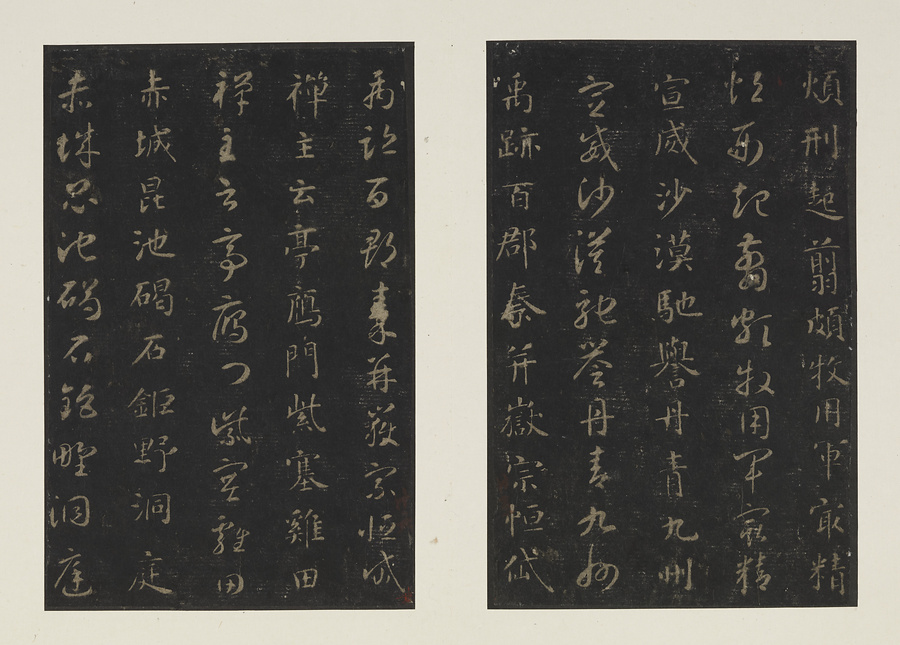 煩刑起翦頗牧用軍冣精
煩刑起翦頗牧用軍冣精
宣威沙漠馳譽丹青九州
宣威沙漠馳譽丹青九州
禹跡百郡秦并嶽宗恒岱
禹跡百郡秦并嶽宗恒岱
禪主云亭鴈門紫塞雞田
禪主云亭鴈門紫塞雞田
赤城昆池碣石鉅野洞庭
赤城昆池碣石鉅野洞庭